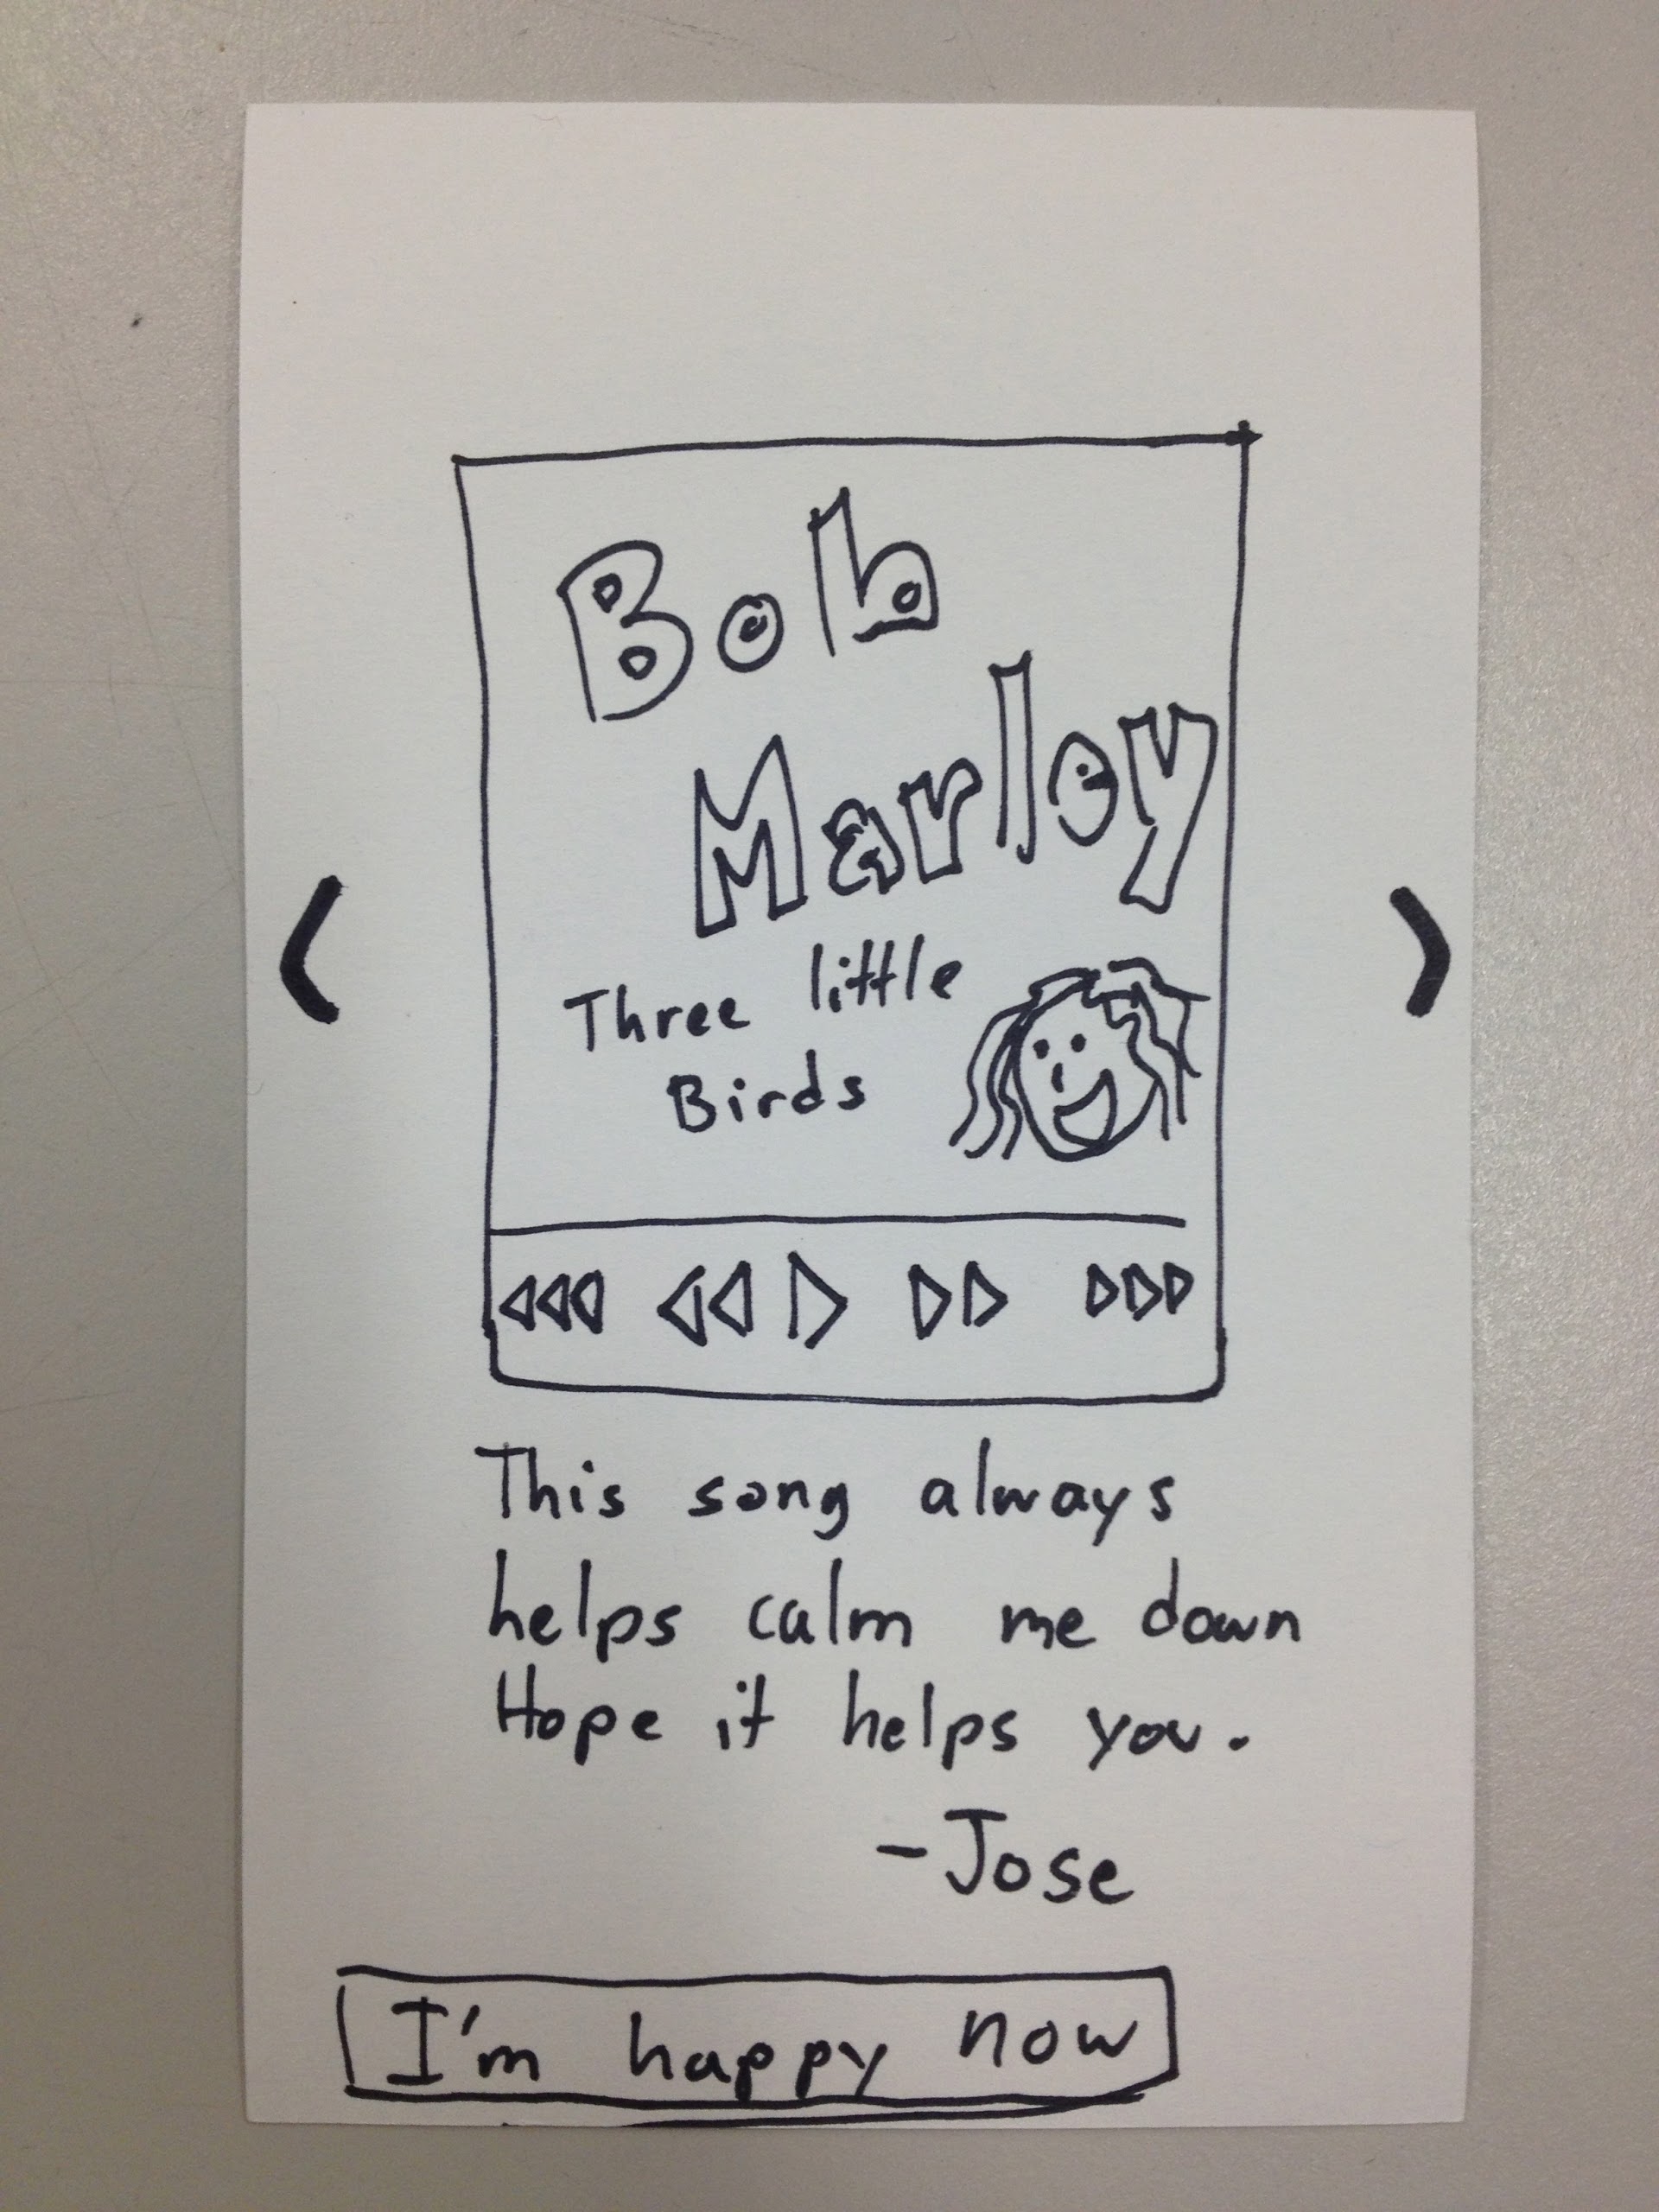 Bob
Marley
Three little
Birds
This song always
helps calm me down
Hope it helps you.
-Jose
I'm happy now